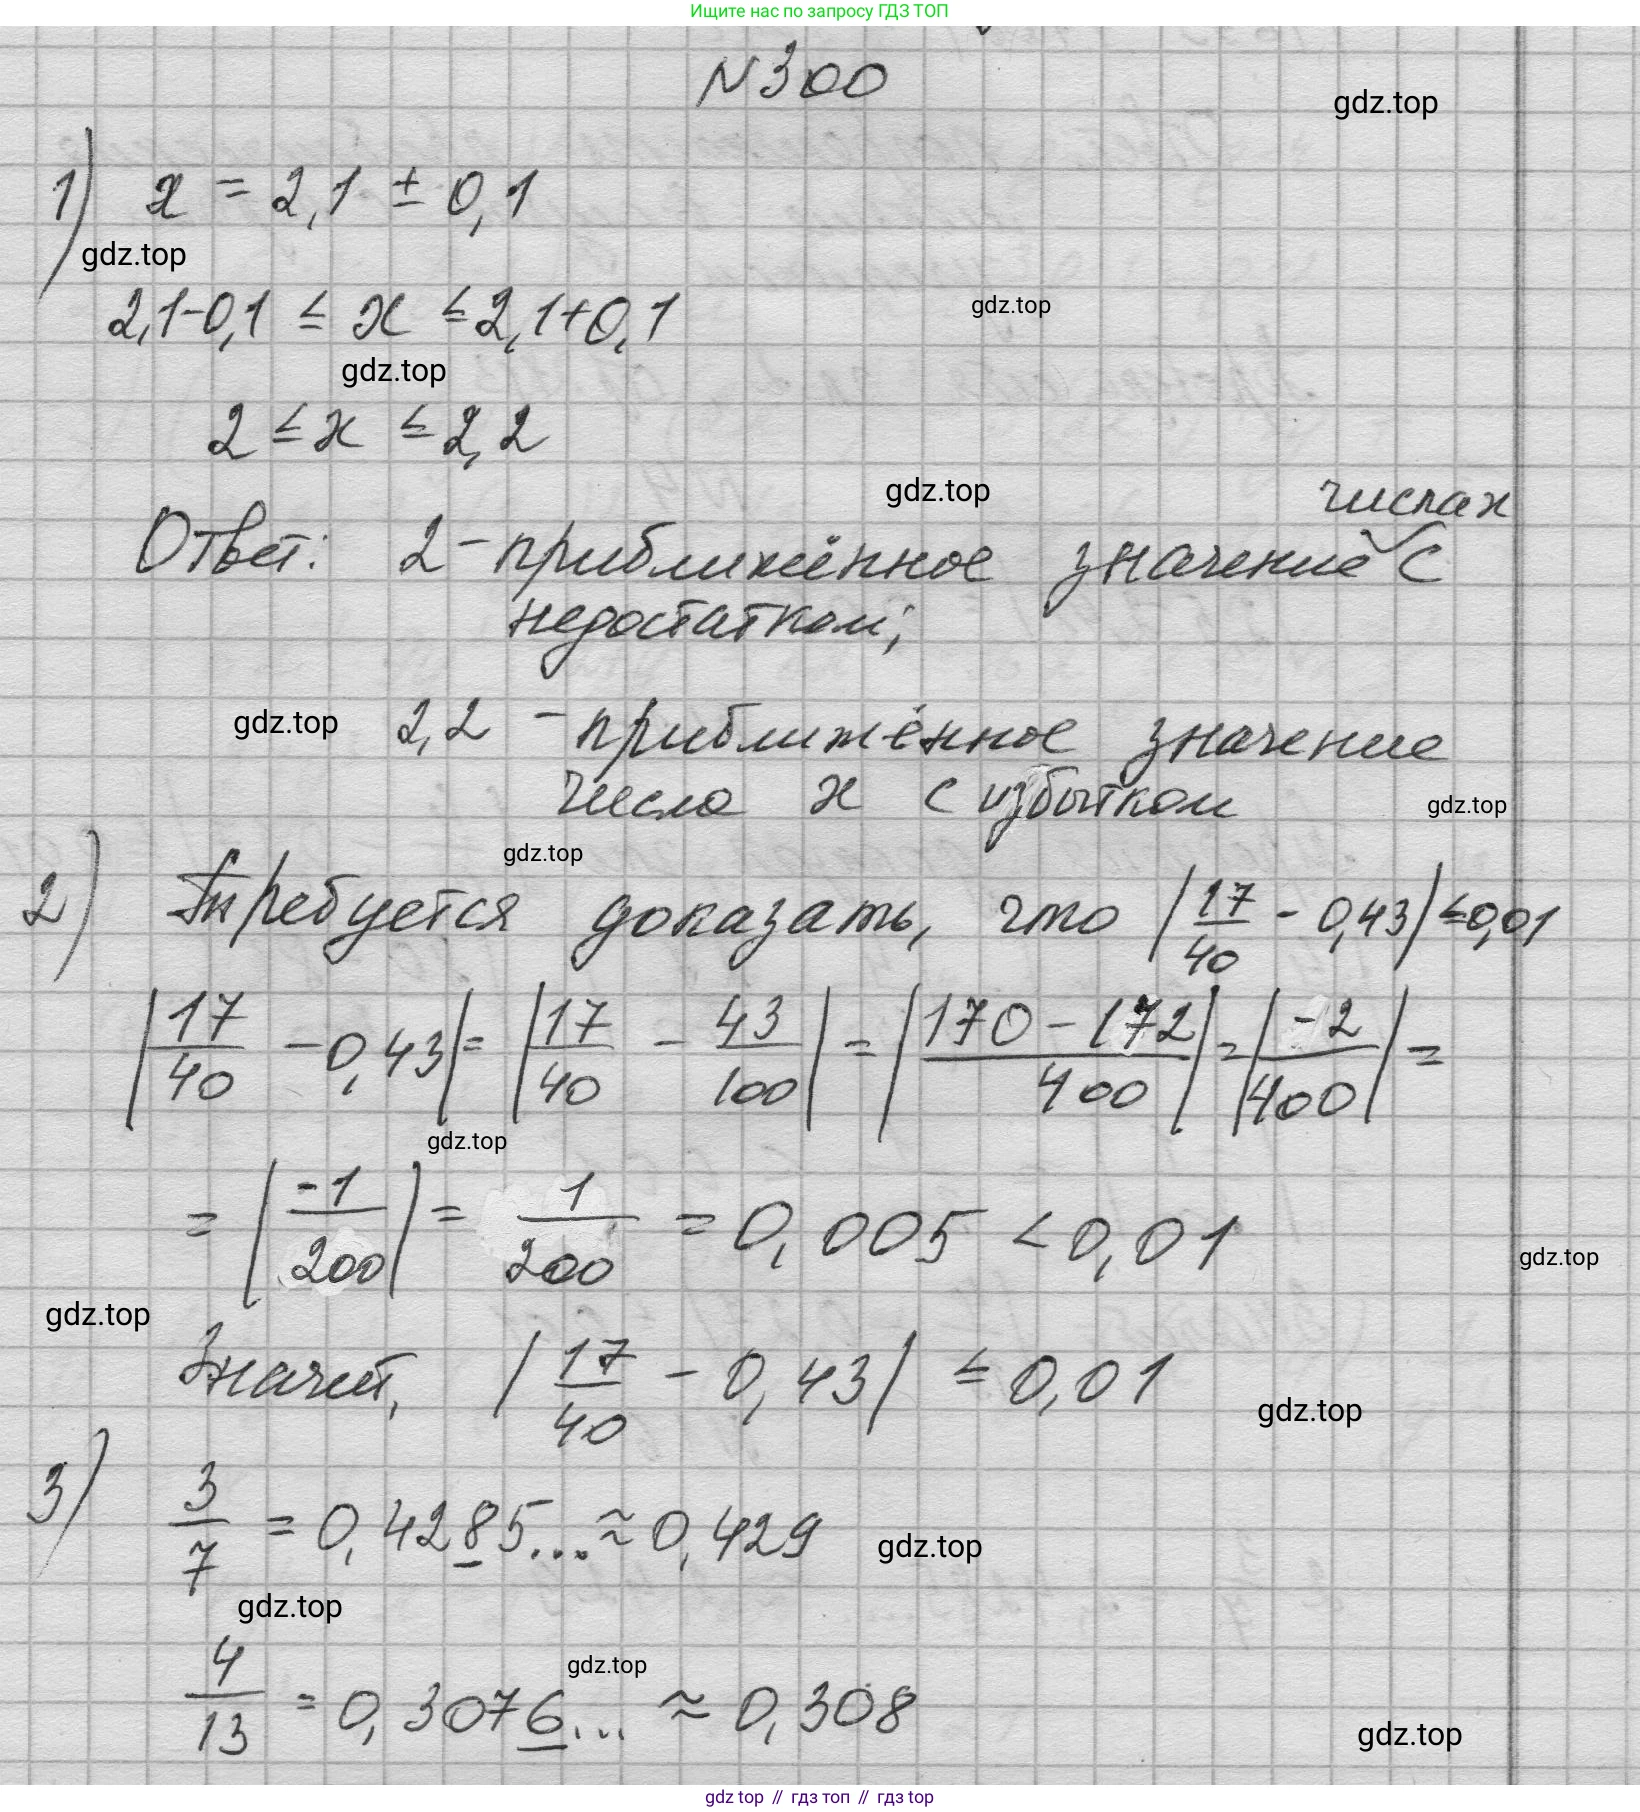 Ищите нас по запросу ГДЗ ТОП
N300
gdz.top
1) x = 2,1 ± 0,1
gdz.top
2,1-0,1 ≤ x ≤ 2,1+0,1
gdz.top
gdz.top
2 ≤ x ≤ 2,2
gdz.top
числа x
Ответ: 2 - приближённое значение с
недостатком;
gdz.top
2,2 - приближённое значение
числа x с избытком
gdz.top
gdz.top
2) Требуется доказать, что |17/40 - 0,43| ≤ 0,01
|17/40 - 0,43| = |17/40 - 43/100| = |(170 - 172)/400| = |-2/400| =
gdz.top
= |-1/200| = 1/200 = 0,005 < 0,01
gdz.top
gdz.top
Значит, |17/40 - 0,43| ≤ 0,01
gdz.top
3) 3/7 = 0,4285... ≈ 0,429
gdz.top
gdz.top
gdz.top
4/13 = 0,3076... ≈ 0,308
gdz.top
gdz top // гдз топ // гдз top